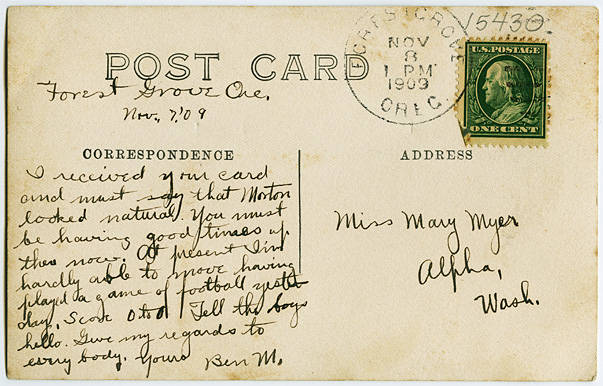 15430
FOREST GROVE
NOV
8
1 PM
1909
OREG.
U.S. POSTAGE
ONE CENT
POST CARD
Forest Grove Ore.
Nov., 7,'09
CORRESPONDENCE
ADDRESS
I received your card
and must say that Morton
looked natural. You must
be having good times up
there now. At present I'm
hardly able to move having
played a game of football yester
day, Score 0 to 0 Tell the boys
hello. Give my regards to
every body, Yours Ben M.
Miss Mary Myer
Alpha,
Wash.